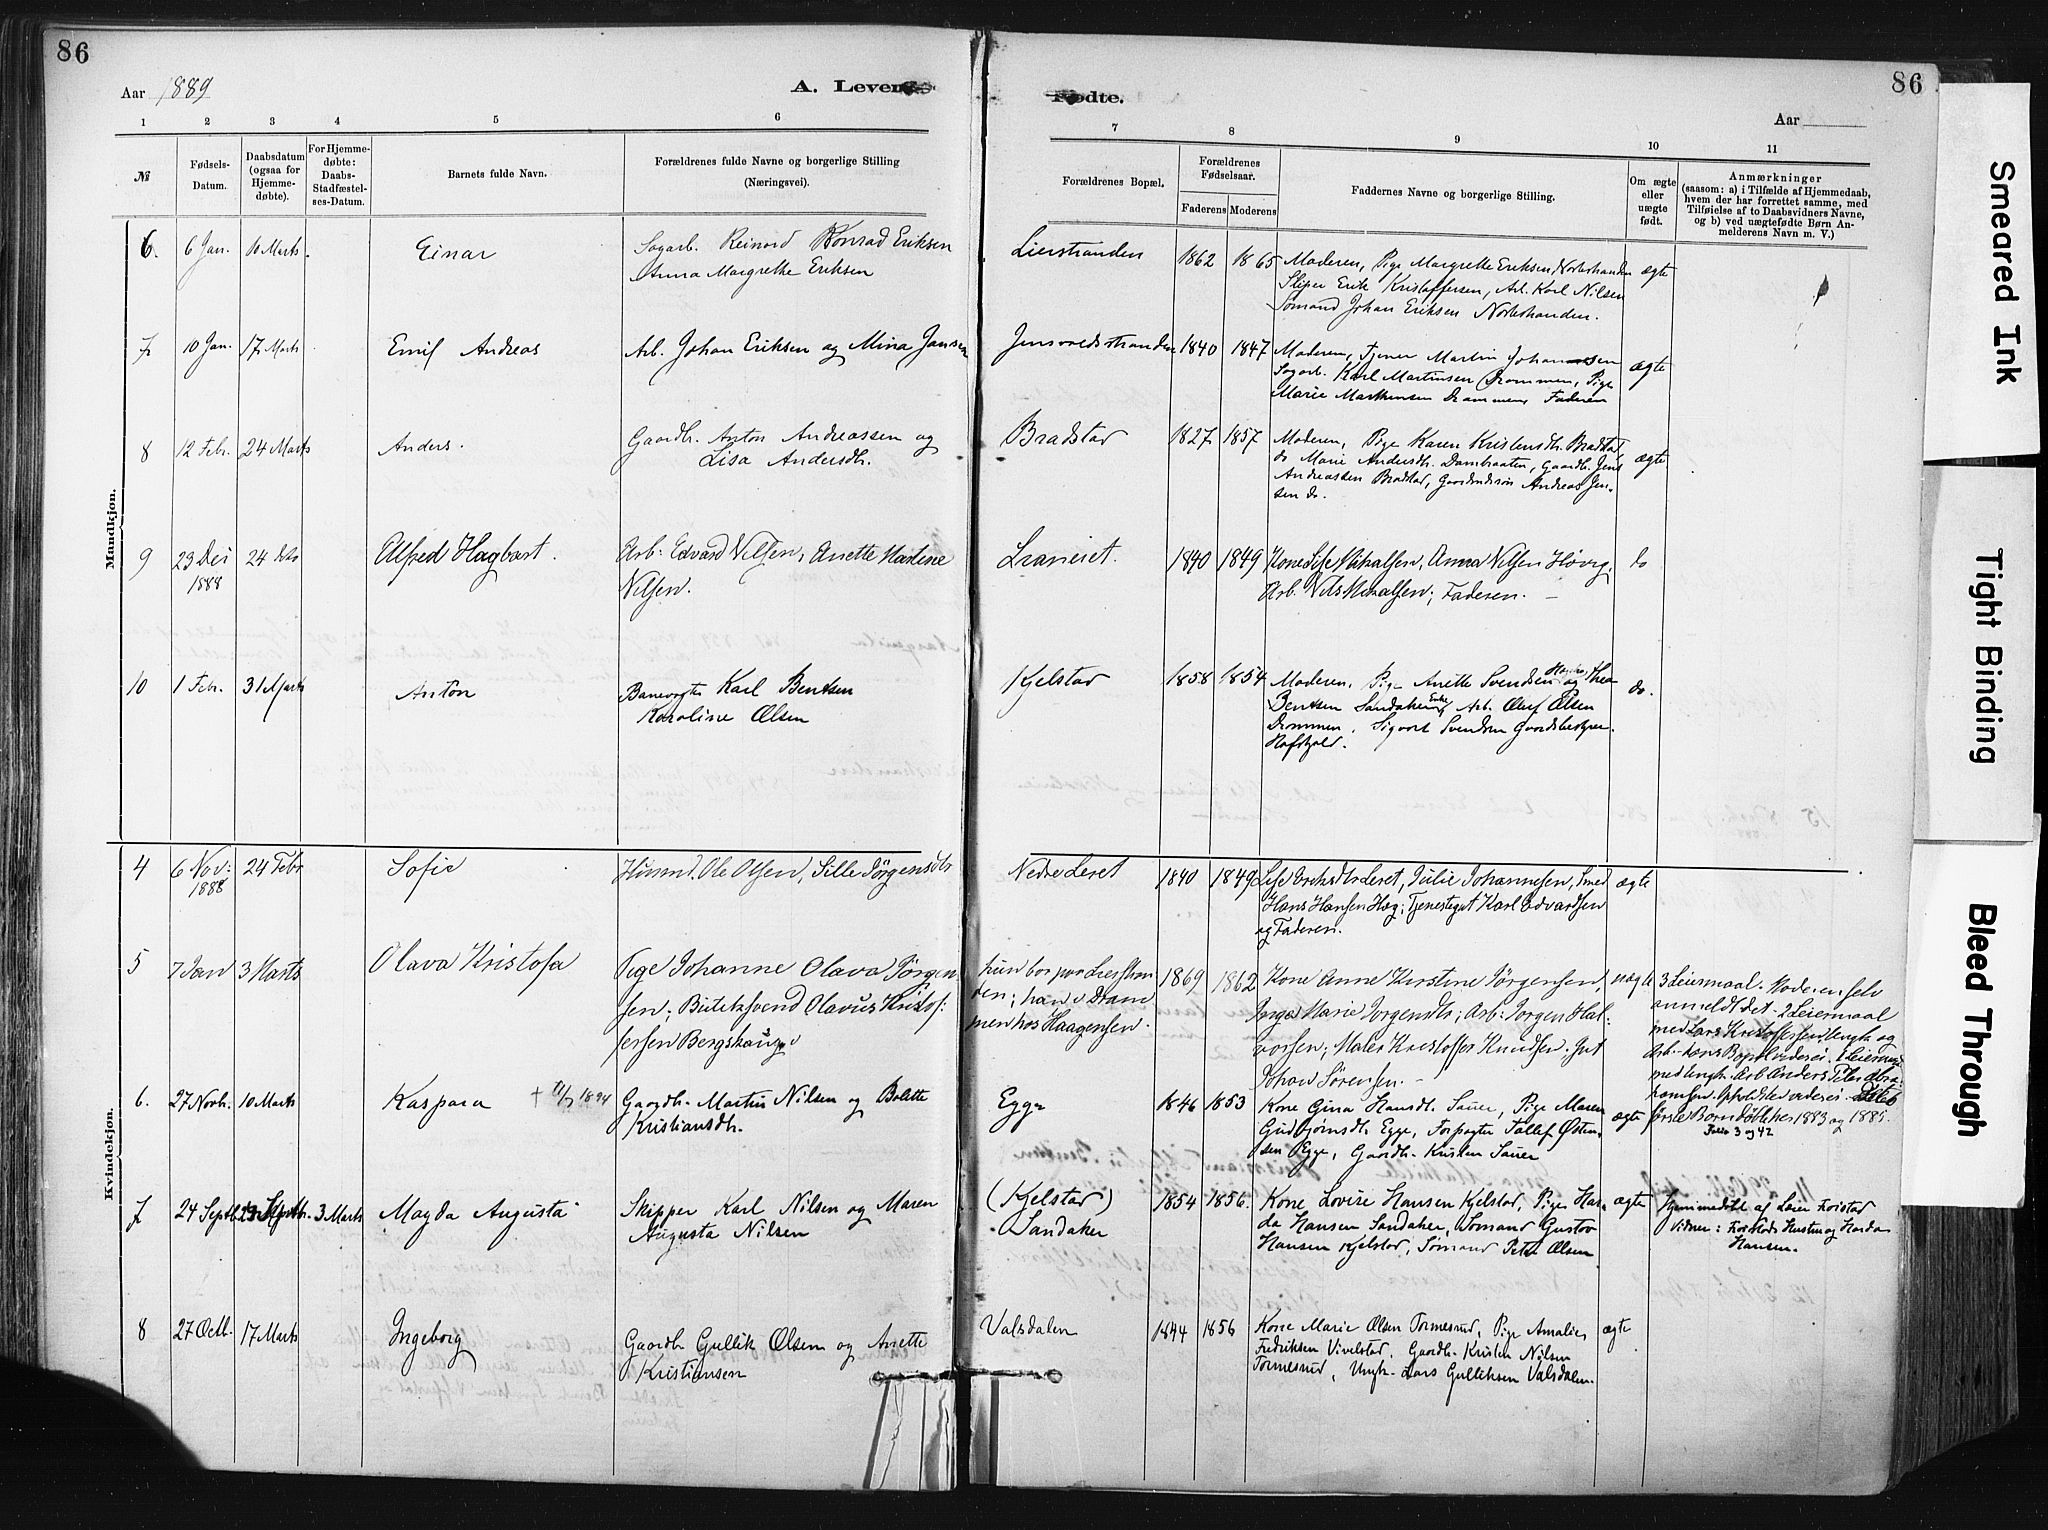 86
86
Aar 1889
A. Levende
Fødte.
Aar
1 2 3 4 5 6 7 8 9 10 11
№
Fødsels-
Datum.
Daabsdatum
(ogsaa for
Hjemme-
døbte).
For Hjemme-
døbte:
Daabs-
Stadfæstel-
ses-Datum.
Barnets fulde Navn.
Forældrenes fulde Navne og borgerlige Stilling
(Næringsvei).
Forældrenes Bopæl.
Forældrenes
Fødselsaar.
Faderens Moderens
Faddernes Navne og borgerlige Stilling.
Om ægte
eller
uægte
født.
Anmærkninger
(saasom: a) i Tilfælde af Hjemmedaab,
hvem der har forrettet samme, med
Tilføielse af to Daabsvidners Navne,
og b) ved uægtefødte Børn An-
melderens Navn m. V.)
Mandkjøn.
6. 6 Jan. 10 Marts Einar
Sagarb. Reinord Konrad Eriksen
Anna Margrethe Eriksen
Lierstranden 1862 1865
Moderen, Pige Margrethe Eriksen, Norbestranden
Sliper Erik Kristoffersen, Arb. Karl Nilsen
Sømand Johan Eriksen
ægte
7 10 Jan. 17 Marts Emil Andreas
Arb. Johan Eriksen og Mina Jansen
1840 1847
Moderen, Tjener Martin Johannesen
Sagarb. Karl Martinsen Drammen, Pige
Marie Drammen, Faderen
ægte
8 12 Febr. 24 Marts Anders.
Gaardb. Anton Andreassen og
Lisa Andersdtr.
Bradstad 1827 1857
Moderen, Pige Karen Kristensdtr. Bradstad,
do Marie Andersdtr. Damhaaten, Gaardb. Jens
Andreassen Bradstad, Gaardmdssøn Andreas Jen-
sen do.
ægte
9 23 Dei
1888
24 Alfred Hagbart.
Arb: Edvard Nilsen, Anette Martine
Nilsen.
1840 1849
Kone Lise Mikalsen, Anna Nilsen Høvig,
Arb. Nils Mikalsen, Faderen.
do
10 1 Febr. 31 Marts Anton
Banevogter Karl Bentsen
Karoline Olsen
Kjelstad 1858 1854
Moderen, Pige Anette Svendsen og Thea
Bentsen Sandaker, Arb. Oluf Olsen
Drammen, Sigvart Svendsen Gaardsbestyrer
do.
Kvindekjøn.
4 6 Nov:
1888
24 Febr Sofie
Husmd. Ole Olsen, Sille Jørgensdtr
Nedre Leret 1840 1849
Lise Leret, Julie Johannesen, Smed
Hans Hansen Hæg, Tjenestegut Karl Edvardsen
og Faderen.
ægte
5 7 Jan 3 Marts Olava Kristofa
Pige Johanne Olava Jørgen
sen; Butiksvend Olavus Kristof:
fersen Bergskaug
hun bor paa Lierstran
den; han i Dram
men hos Haagensen.
1869 1862
Kone Anne Kirstine Jørgensen,
Inga Marie Jørgensdtr; Arb: Jørgen Hal-
vorsen; Maler Kristoffer Knudsen. Gut
Johan Sørensen.
uægte
3 Leiermaal. Moderen selv
anmeldt det - 2 Leiermaal
med Lars Kristoffersen Ungk. og
Arb. - hans Bopæl videsei. 1 Leierm.
med Ungk. Arb Anders Peter Abra
hamsen. Opholdsted videsei.
første Born døbt her 1883 og 1885.
Folio 3 og 42
6. 27 Novbr. 10 Marts Kaspara † 11/7 1894
Gaardb. Martin Nilsen og Bolette
Kristiansdtr.
Egge 1846 1853
Kone Gina Hansdtr. Sauer, Pige Maren
Gudbjørnsdtr. Egge, Forpagter Tollef Østen-
sen Egge, Gaardb. Kristen Sauer
ægte
7 24 Septb. 3 Marts Magda Augusta
Skipper Karl Nilsen og Maren
Augusta Nilsen
(Kjelstad)
Sandaker
1854 1856.
Kone Lovise Hansen Kjelstad, Pige Har-
da Hansen Sandaker, Sømand Gustav
Hansen Kjelstad, Sømand Peter Olsen
ægte
Hjemmedøbt af Læge Foistad
Vidner: Foistads Hustru og Harda
Hansen.
8 27 Octb. 17 Marts Ingeborg
Gaardb Gullik Olsen og Anette
Kristiansen
Valsdalen 1844 1856
Kone Marie Olsen Tormesrud, Pige Amalie
Fredriksen Vivelstad, Gaardb. Kristen Nilsen
Tormesrud, Ungk. Lars Gulliksen Valsdalen.
ægte
Smeared Ink
Tight Binding
Bleed Through